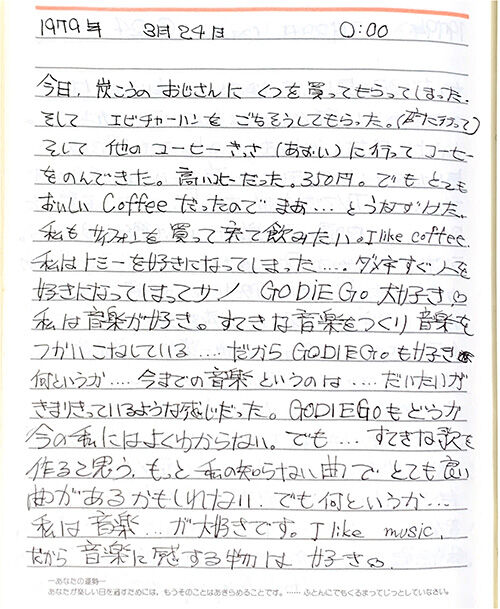 1979年 3月24日 0:00
今日、炭こうの おじさんに くつを 買ってもらってしまった。
そして エビチャーハンを ごちそうしてもらった。(店に行って)
そして 他の コーヒーきっさ (あずい)に行って コーヒー
をのんできた。高いコーヒーだった。350円。でも とても
おいしい Coffee だったので まあ…とうなずけた。
私も サイフォンを 買って来て飲みたい。I like coffee.
私はトミーを好きになってしまった….ダメネすぐ人を
好きになってしまってサ! GODIEGO 大好き
私は音楽が好き。すてきな音楽をつくり 音楽を
つかいこなしている ….だから GODIEGOも好き
何というか ….今までの音楽 というのは ….だいたいが
きまりきっているような感じだった。GODIEGOもどうか
今の私にはよくわからない。でも …すてきな歌を
作ると思う。もっと 私の知らない曲で とても良い
曲があるかもしれない。でも何というか…
私は 音楽…が大好きです。I like music.
だから 音楽に感する物は 好き
―あなたの運勢―
あなたが楽しい日を過すためには、もうそのことはあきらめることです。……ふとんにでもくるまってじっとしていなさい。